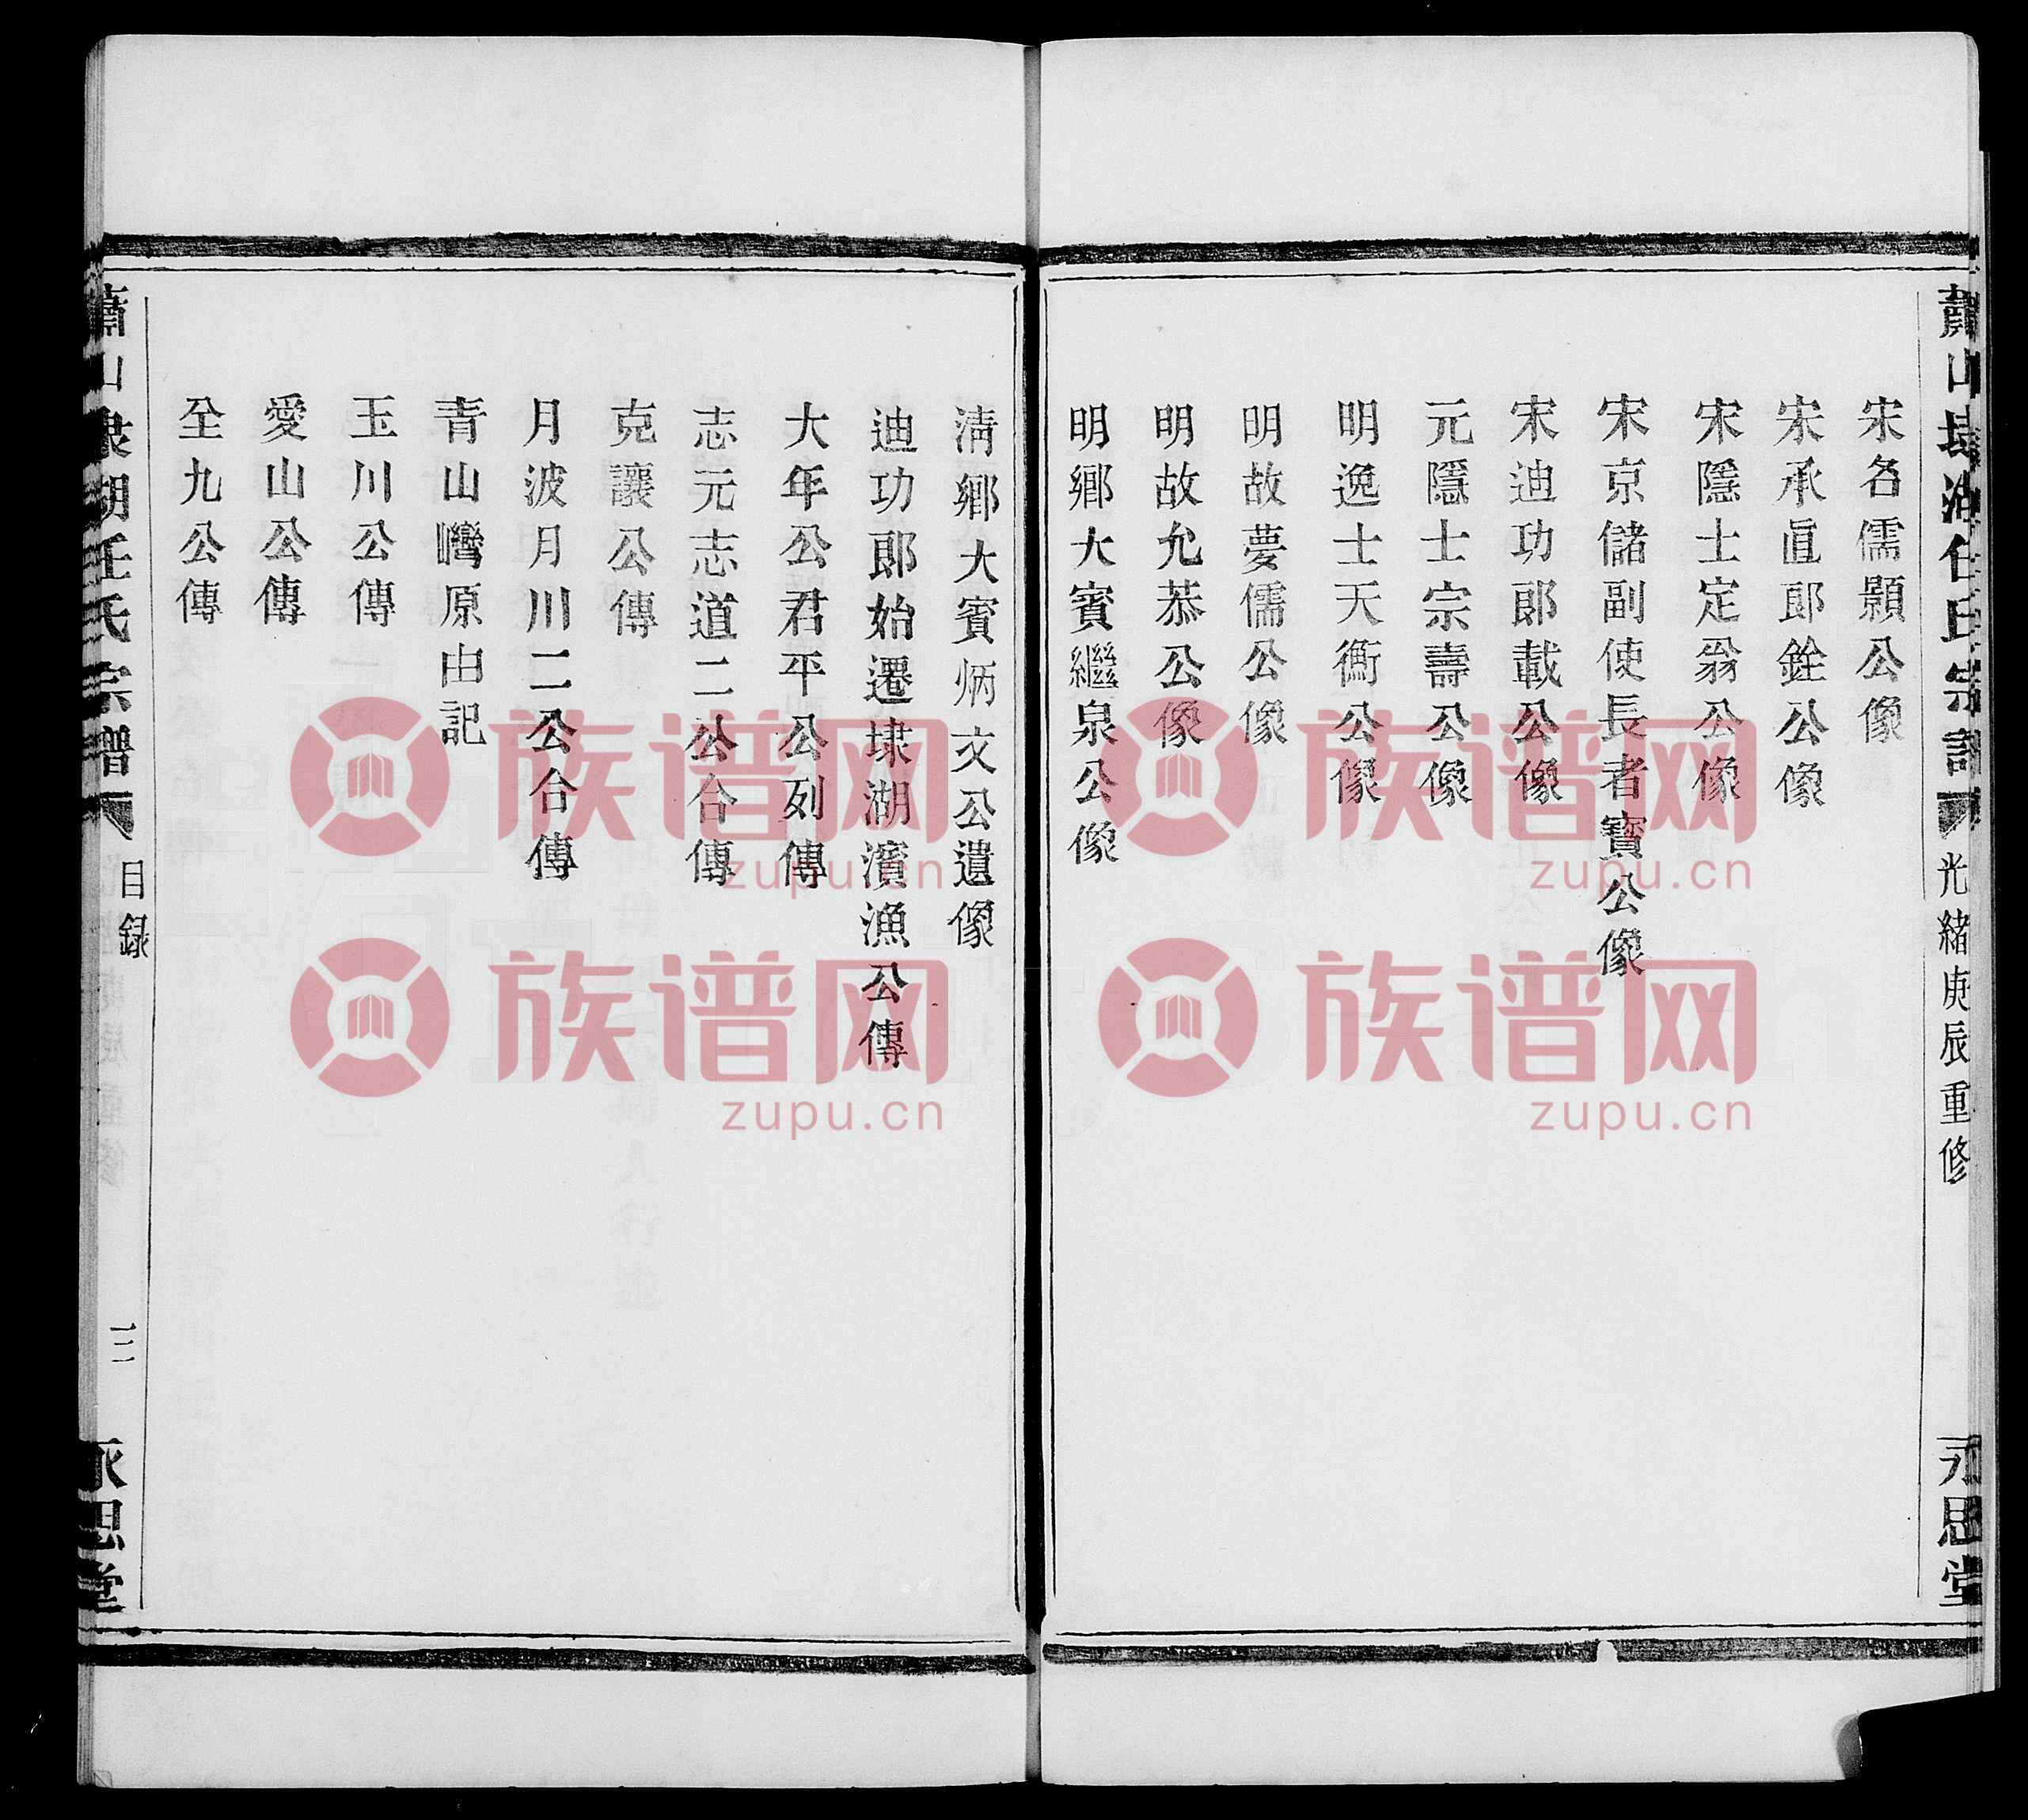 蕭山埭湖任氏宗譜 光緒庚辰重修 永思堂
宋名儒顥公像
宋承直郎銓公像
宋隱士定翁公像
宋京儲副使長者寶公像
宋迪功郎載公像
元隱士宗壽公像
明逸士天衡公像
明故夢儒公像
明故允恭公像
明鄉大賓繼泉公像
清鄉大賓炳文公遺像
迪功郎始遷埭湖濱漁公傳
大年公君平公列傳
志元志道二公合傳
克讓公傳
月波月川二公合傳
青山灣原由記
玉川公傳
愛山公傳
全九公傳
蕭山埭湖任氏宗譜 目録 三 永思堂
族谱网
zupu.cn
族谱网
zupu.cn
族谱网
zupu.cn
族谱网
zupu.cn